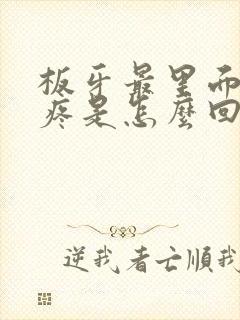 板牙最里而
疼是怎麼回
逆我者亡順我